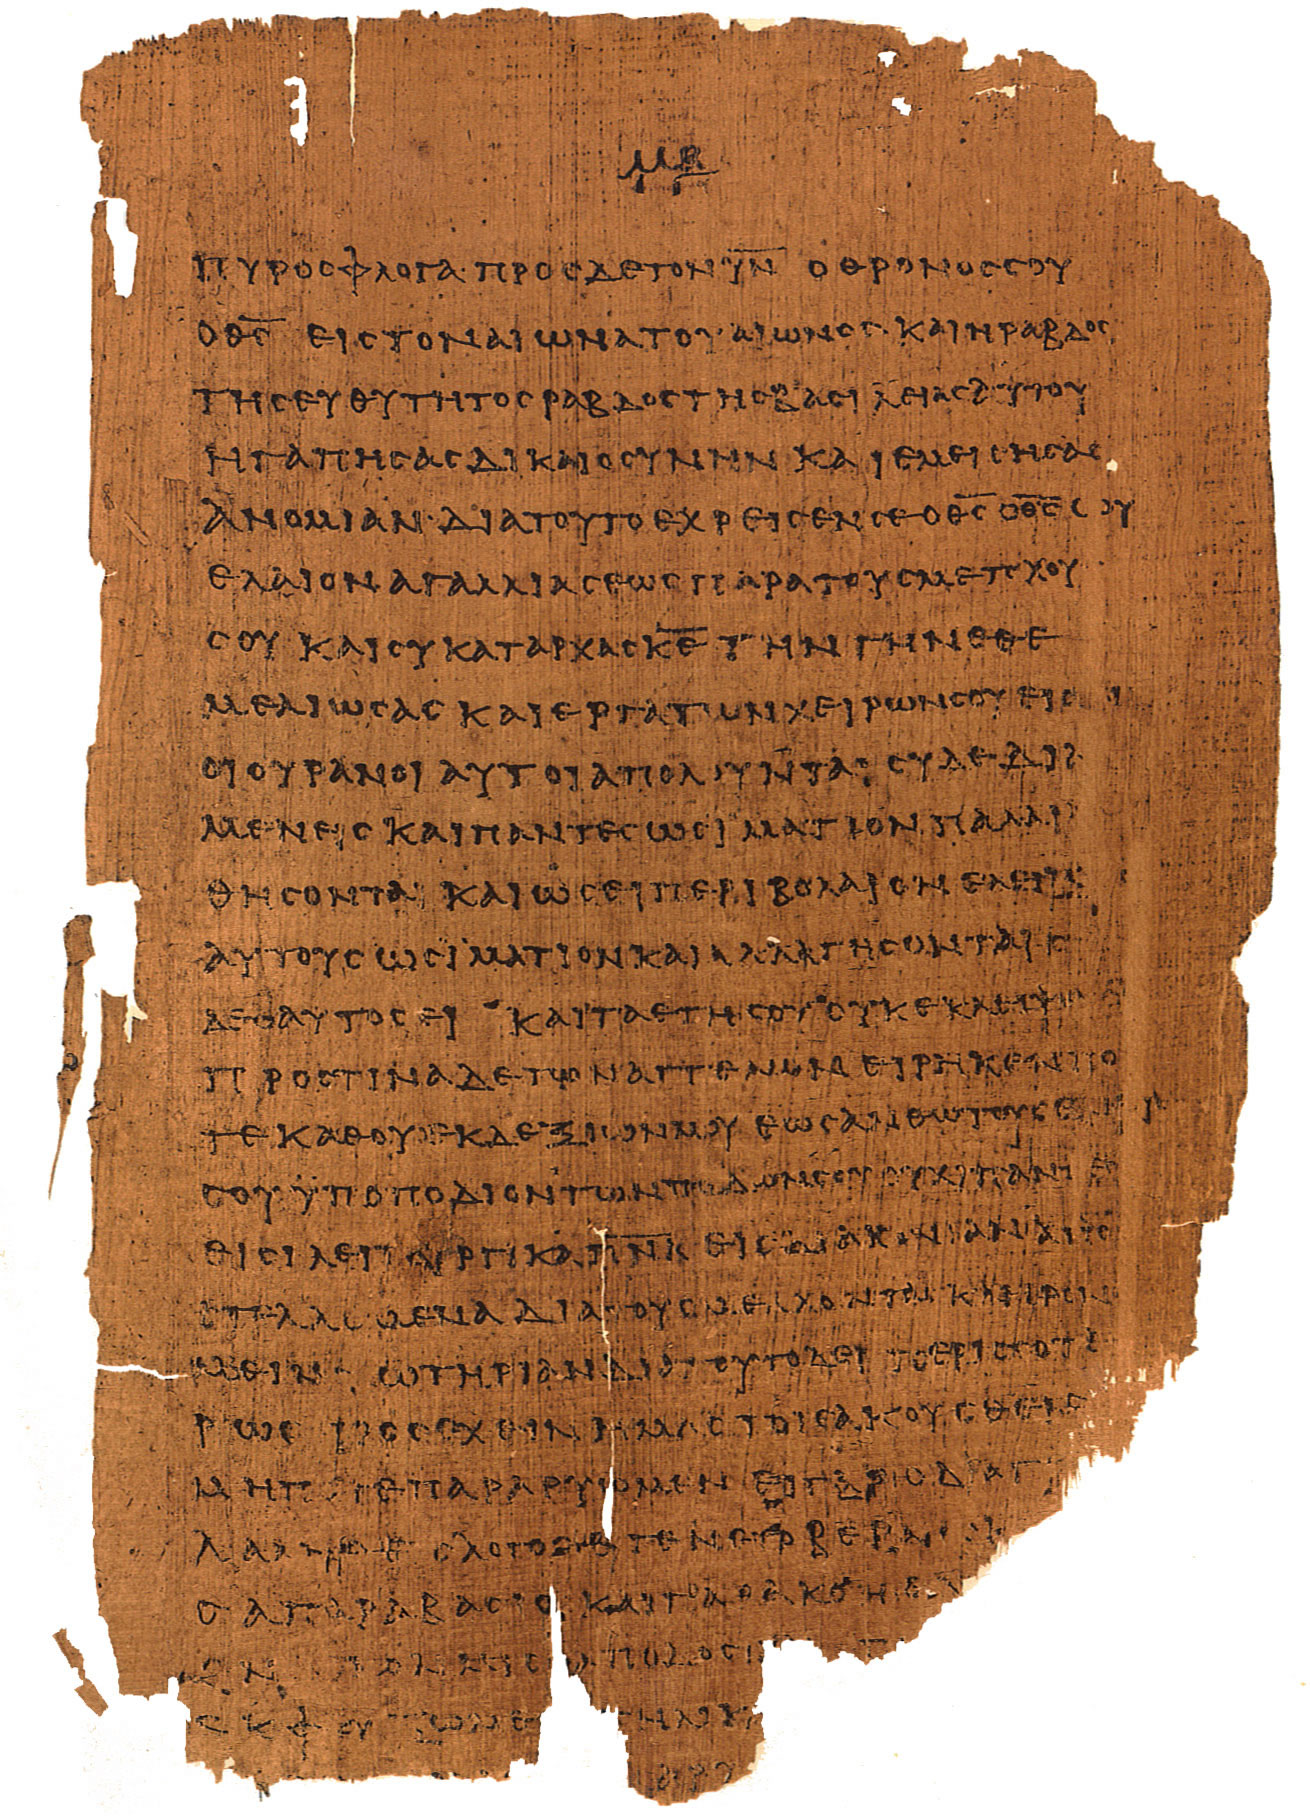 μβ
ΠΥΡΟΣ ΦΛΟΓΑ· ΠΡΟΣ ΔΕ ΤΟΝ Υ̅Ν̅ Ο ΘΡΟΝΟΣ ΣΟΥ
Ο Θ̅Σ̅ ΕΙΣ ΤΟΝ ΑΙΩΝΑ ΤΟΥ ΑΙΩΝΟΣ· ΚΑΙ Η ΡΑΒΔΟΣ
ΤΗΣ ΕΥΘΥΤΗΤΟΣ ΡΑΒΔΟΣ ΤΗΣ ΒΑΣΙΛΕΙΑΣ ΑΥΤΟΥ
ΗΓΑΠΗΣΑΣ ΔΙΚΑΙΟΣΥΝΗΝ ΚΑΙ ΕΜΕΙΣΗΣΑΣ
ΑΝΟΜΙΑΝ· ΔΙΑ ΤΟΥΤΟ ΕΧΡΕΙΣΕΝ ΣΕ Ο Θ̅Σ̅ Ο Θ̅Σ̅ ΣΟΥ
ΕΛΑΙΟΝ ΑΓΑΛΛΙΑΣΕΩΣ ΠΑΡΑ ΤΟΥΣ ΜΕΤΟΧΟΥ
ΣΟΥ ΚΑΙ ΣΥ ΚΑΤ ΑΡΧΑΣ Κ̅Ε̅ ΤΗΝ ΓΗΝ ΕΘΕ
ΜΕΛΙΩΣΑΣ ΚΑΙ ΕΡΓΑ ΤΩΝ ΧΕΙΡΩΝ ΣΟΥ ΕΙΣΙ
ΟΙ ΟΥΡΑΝΟΙ ΑΥΤΟΙ ΑΠΟΛΟΥΝΤΑΙ ΣΥ ΔΕ ΔΙΑ
ΜΕΝΕΙΣ ΚΑΙ ΠΑΝΤΕΣ ΩΣ ΙΜΑΤΙΟΝ ΠΑΛΑΙ
ΘΗΣΟΝΤΑΙ ΚΑΙ ΩΣΕΙ ΠΕΡΙΒΟΛΑΙΟΝ ΕΛΕΙΞ
ΑΥΤΟΥΣ ΩΣ ΙΜΑΤΙΟΝ ΚΑΙ ΑΛΛΑΓΗΣΟΝΤΑΙ Σ
ΔΕ Ο ΑΥΤΟΣ ΕΙ ΚΑΙ ΤΑ ΕΤΗ ΣΟΥ ΟΥΚ ΕΚΛΕΙΨΟ
ΠΡΟΣ ΤΙΝΑ ΔΕ ΤΩΝ ΑΓΓΕΛΩΝ ΕΙΡΗΚΕΝ ΠΟ
ΤΕ ΚΑΘΟΥ ΕΚ ΔΕΞΙΩΝ ΜΟΥ ΕΩΣ ΑΝ ΘΩ ΤΟΥΣ Ε
ΣΟΥ ΥΠΟΠΟΔΙΟΝ ΤΩΝ ΠΟΔΩΝ ΣΟΥ ΟΥΧΙ ΠΑΝΤΕΣ
ΕΙΣΙ ΛΕΙΤΟΥΡΓΙΚΑ Π̅Ν̅Α̅ ΕΙΣ ΔΙΑΚΟΝΙΑΝ ΑΠΟ
ΣΤΕΛΛΟΜΕΝΑ ΔΙΑ ΤΟΥΣ ΜΕΛΛΟΝΤΑΣ ΚΛΗΡΟΝ
ΜΕΙΝ ΣΩΤΗΡΙΑΝ ΔΙΑ ΤΟΥΤΟ ΔΕΙ ΠΕΡΙΣΣΟΤΕ
ΡΩΣ ΠΡΟΣΕΧΕΙΝ ΗΜΑΣ ΤΟΙΣ ΑΚΟΥΣΘΕΙΣ
ΜΗΠΟΤΕ ΠΑΡΑΡΥΩΜΕΝ ΕΙ ΓΑΡ Ο ΔΙ ΑΓΓ
ΛΑΛΗΘΕΙΣ ΛΟΓΟΣ ΕΓΕΝΕΤΟ ΒΕΒΑΙΟΣ
ΣΑ ΠΑΡΑΒΑΣΙΣ ΚΑΙ ΠΑΡΑΚΟΗ Ε
ΕΝ ΜΙΣΘΑΠΟΔΟΣΙ
ΕΚΦΕΥ ΤΗΛΙΚ